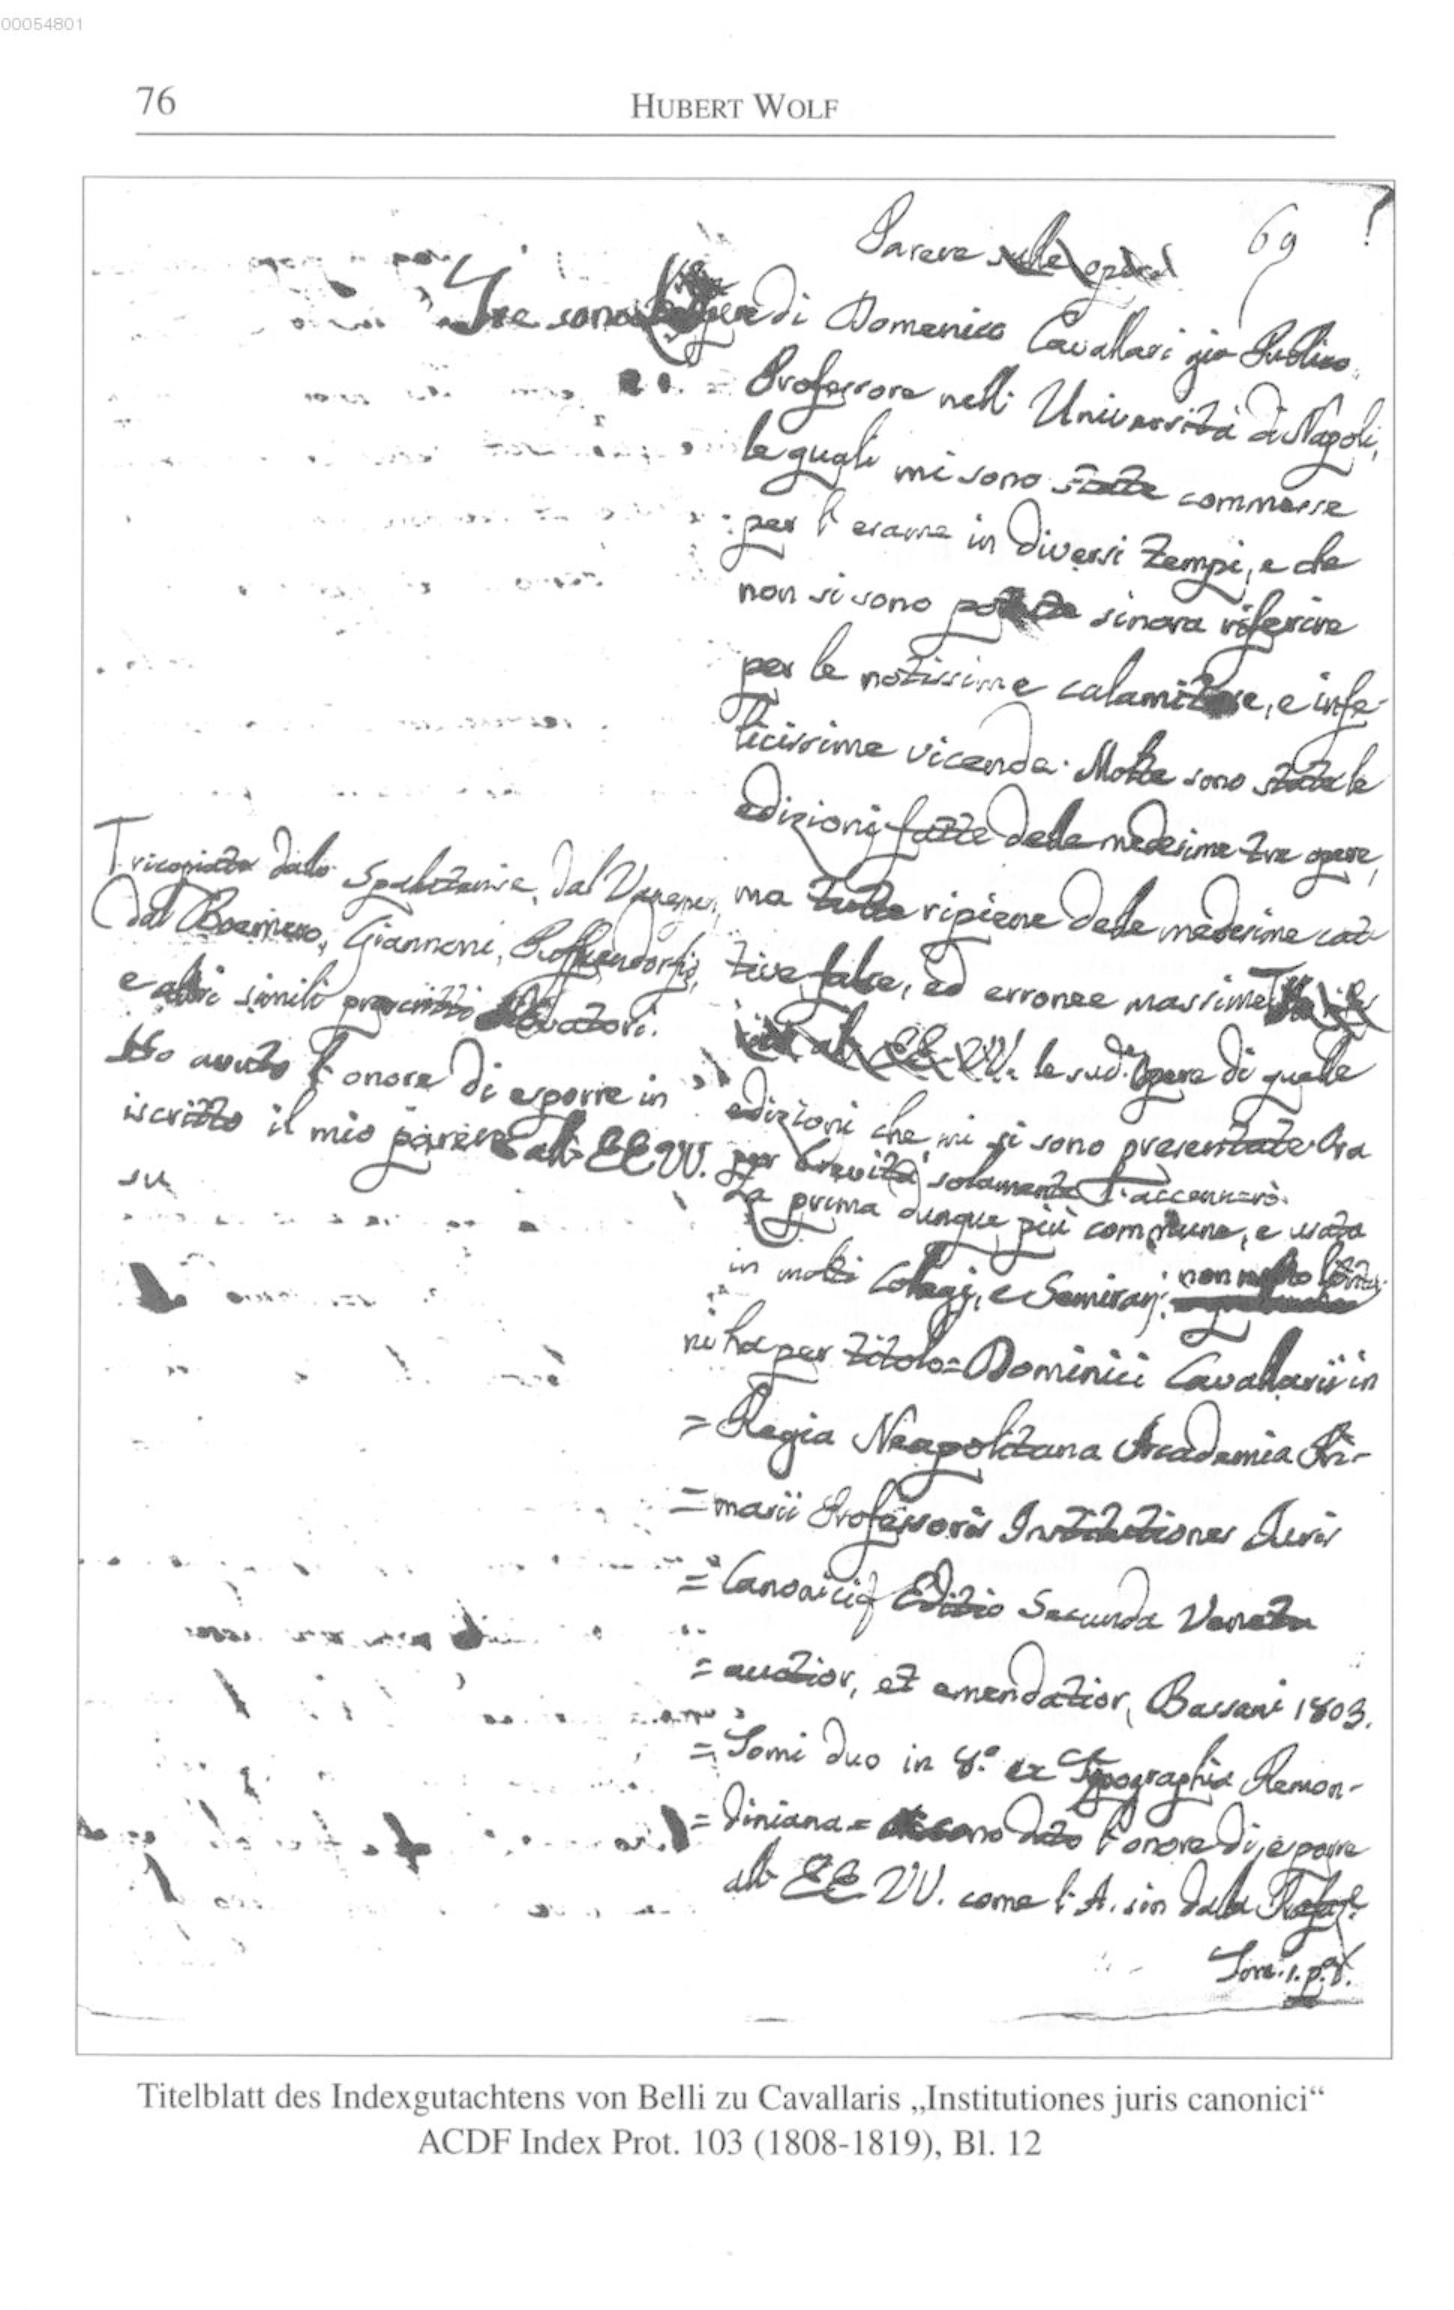 00054801
76
HUBERT WOLF
69
Parere sulle opere
Tre sono le opere di Domenico Cavallari già Publico
Professore nell' Università di Napoli,
le quali mi sono state commesse
per l' esame in diversi tempi, e che
non si sono potute sinora riferire
per le notissime calamitose, e infe-
licissime vicende. Molte sono state le
edizioni fatte delle medesime tre opere,
ma tutte ripiene delle medesime cat-
tive, false, ed erronee massime
alle EE. VV. le sud.e opere di quelle
edizioni che mi si sono presentate. Ora
per brevità solamente l' accennerò.
La prima dunque più commune, e usata
in molti Collegj, e Seminarj non molto
ni ha per titolo = Dominici Cavallarii in
= Regia Neapolitana Academia Pri-
= marii Professoris Institutiones Juris
= Canonici Editio Secunda Veneta
= auctior, et emendatior, Bassani 1803.
= Tomi duo in 8.° ex Typographia Remon-
= diniana = l' onore di esporre
alle EE. VV. come l' A. sin dalla Prefaz.e
Tom. 1. p. 8.
T ricopiate dallo Spalatense, dal Vanespen,
dal Boemero, Giannoni, Puffendorfio,
e altri simili proscritti Novatori.
Ho avuto l' onore di esporre in
iscritto il mio parere alle EE. VV.
su
Titelblatt des Indexgutachtens von Belli zu Cavallaris „Institutiones juris canonici“
ACDF Index Prot. 103 (1808-1819), Bl. 12